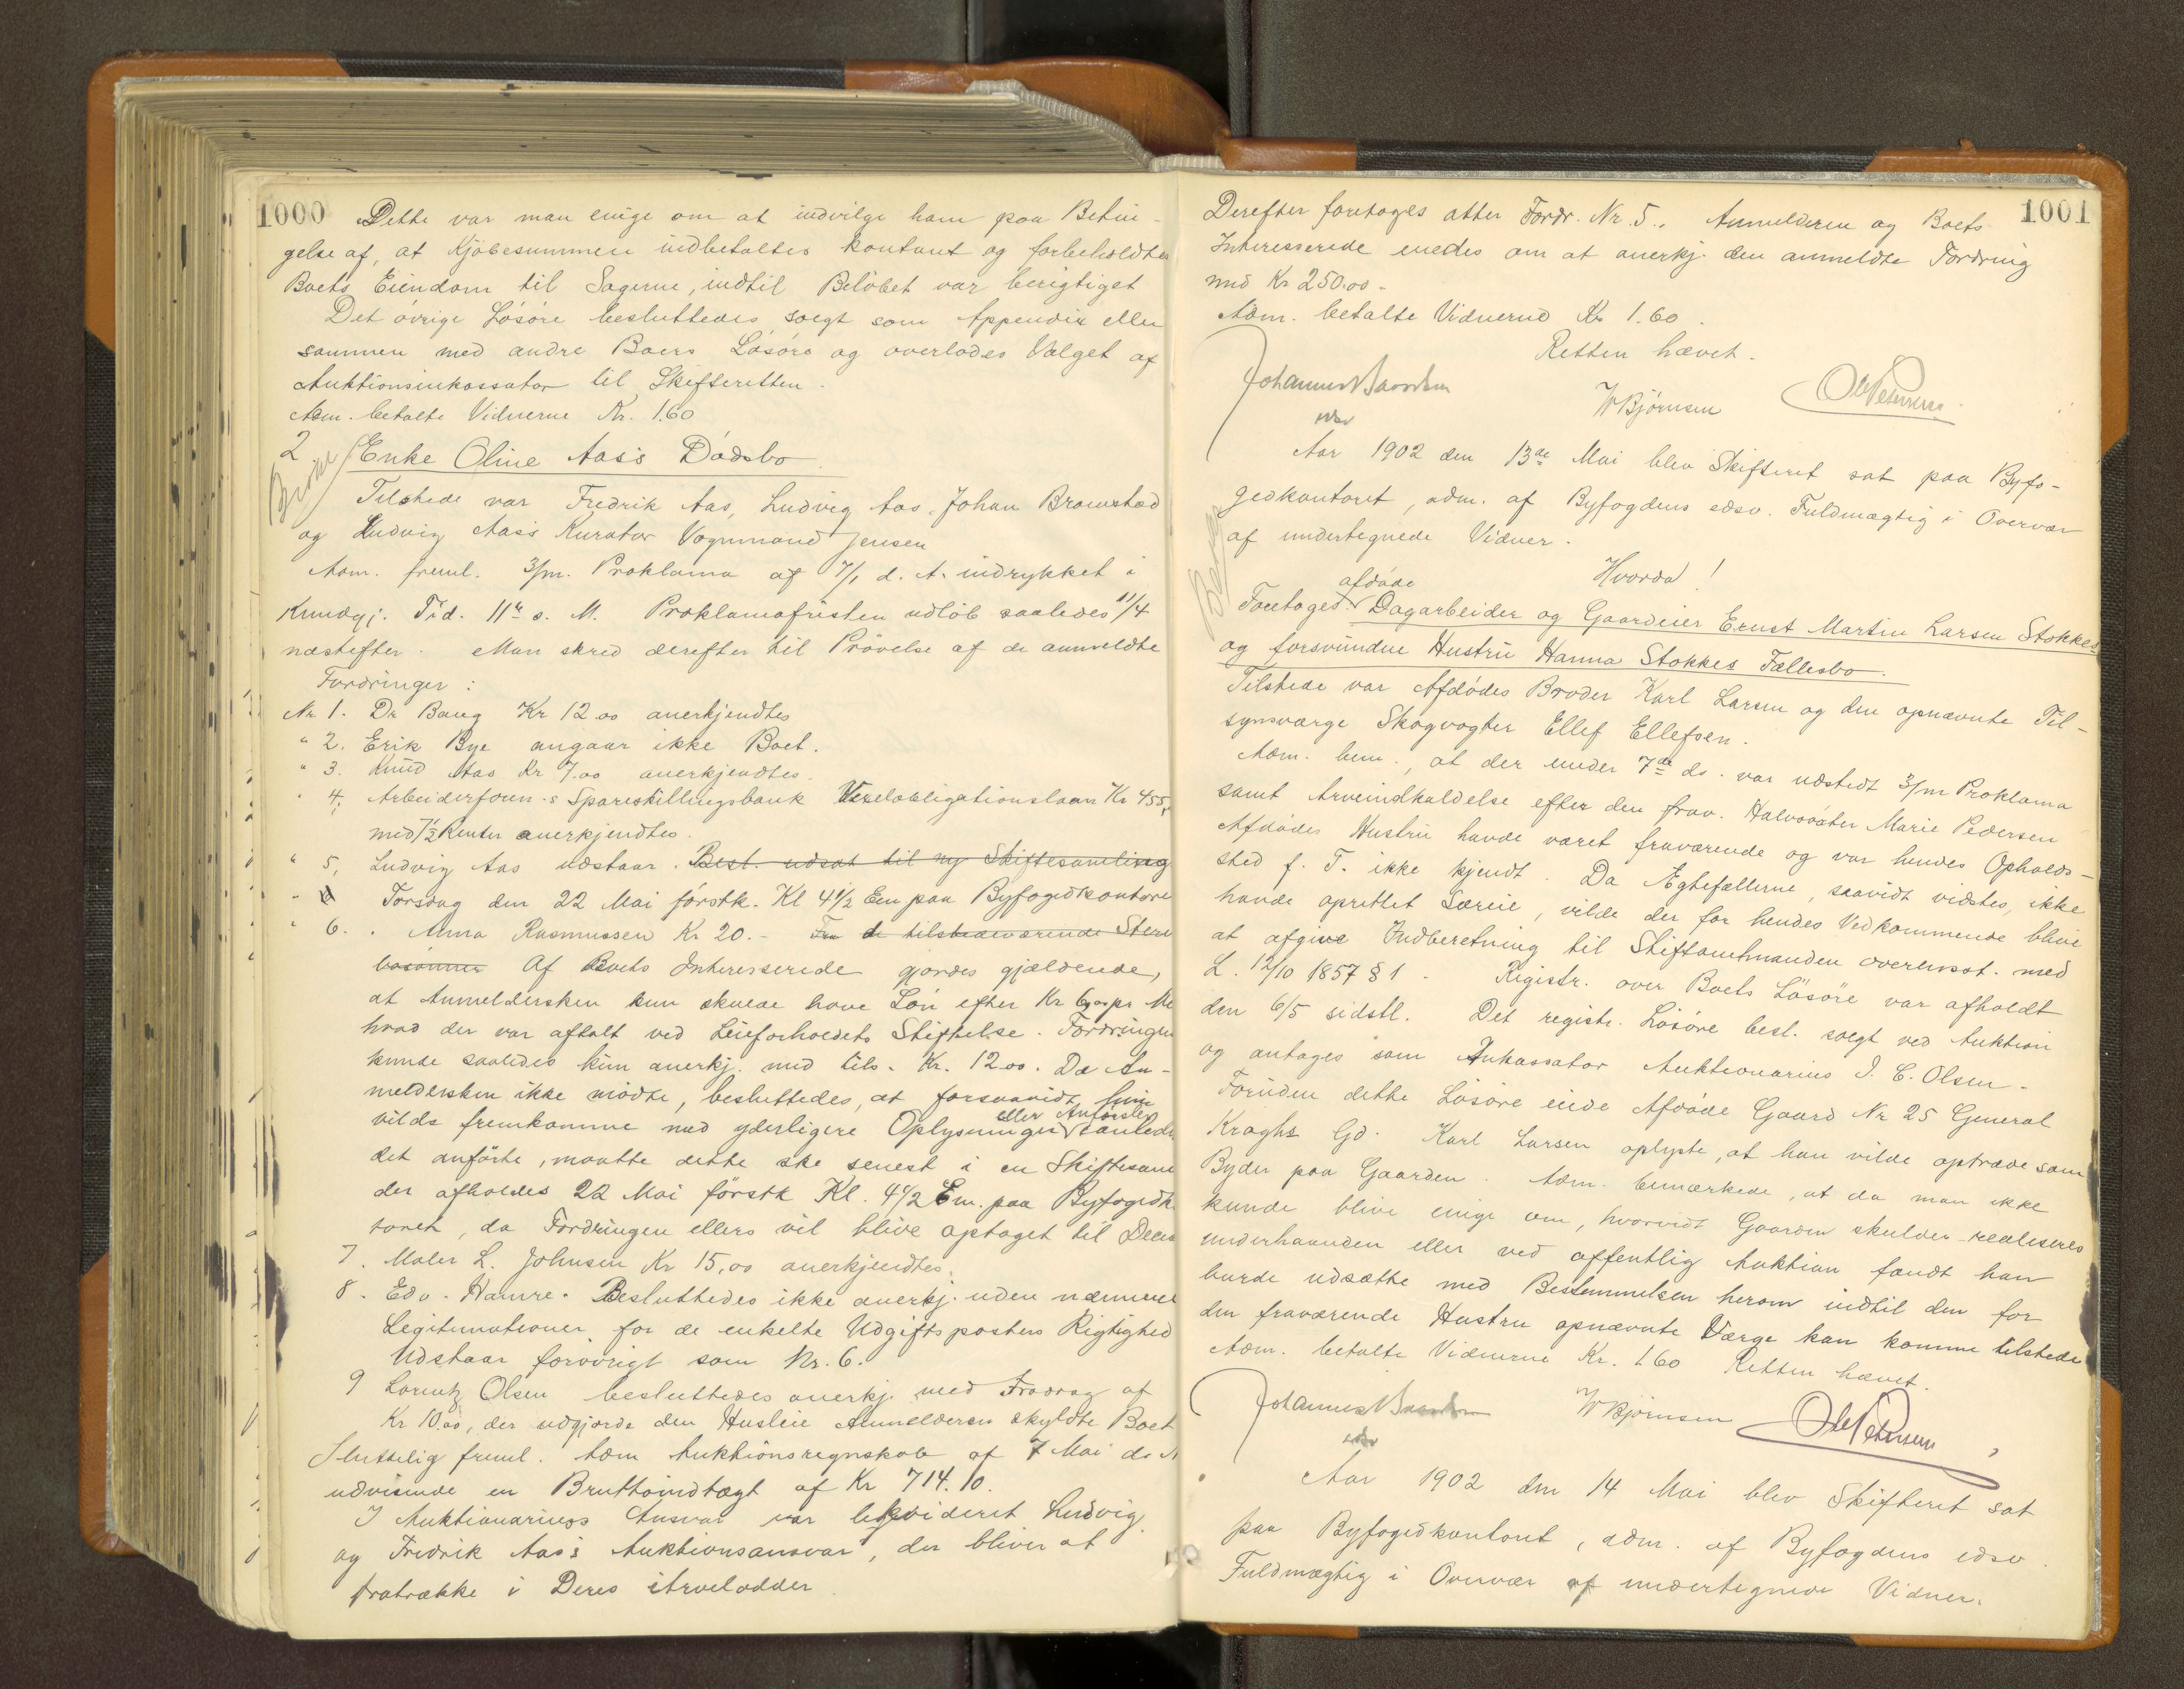 1000
Dette var man enige om at indvilge ham paa Betin-
gelse af, at Kjøbesummen indbetaltes kontant og forbeholdtes
Boets Eiendom til Sagerne, indtil Beløbet var berigtiget
Det øvrige Løsøre besluttedes solgt som Appendix eller
sammen med andre Boers Løsøre og overlodes Valget af
Auktionsinkassator til Skifteretten.
Adm. betalte Vidnerne Kr. 1.60
2. Enke Oline Aas's Dødsbo.
Tilstede var Fredrik Aas, Ludvig Aas, Johan Bramstad
og Ludvig Aas's Kurator Vognmand Jensen
Adm. freml. 3/m. Proklama af 7/1 d. A. indrykket i
Kundgj. Tid. 11te s. M. Proklamafristen udløb saaledes 11/4
næstefter. Man skred derefter til Prøvelse af de anmeldte
Fordringer:
Nr 1. Dr Baug Kr 12.00 anerkjendtes
" 2. Erik Bye angaar ikke Boet.
" 3. Knud Aas Kr 7.00 anerkjendtes.
" 4. Arbeiderforen.s Spareskillingsbank Vexelobligationslaan Kr 455,
med 7½ Renter anerkjendtes.
" 5, Ludvig Aas udstaar. Besl. udsat til ny Skiftesamling
" Torsdag den 22 Mai førstk. Kl 4½ Em paa Byfogedkontore
" 6. Anna Rasmussen Kr 20.- Fra de tilstedeværende Sterv
bosønner Af Boets Interesserede gjordes gjældende,
at Anmeldersken kun skulde have Løn efter Kr 6,00 pr Md
hvad der var aftalt ved Leieforholdets Stiftelse. Fordringen
kunde saaledes kun anerkj. med tils. Kr. 12.00. Da An-
meldersken ikke mødte, besluttedes, at forsaavidt hun
eller Anførsler
vilde fremkomme med yderligere Oplysninger saaledes
det anførte, maatte dette ske senest i en Skiftesam
der afholdes 22 Mai førstk Kl. 4½ Em. paa Byfogedk
toret, da Fordringen ellers vil blive optaget til Decis
7. Maler L. Johnsen Kr 15,00 anerkjendtes.
8. Edv. Hamre. Besluttedes ikke anerkj. uden nærmere
Legitimationer for de enkelte Udgiftsposters Rigtighed
Udstaar forøvrigt som Nr. 6.
9 Lorentz Olsen besluttedes anerkj. med Fradrag af
Kr 10.00, der udgjorde den Husleie Anmelderen skyldte Boet
Sluttelig freml. Adm Auktionsregnskab af 7 Mai d. A
udvisende en Bruttoindtægt af Kr 714.10.
I Auktionarius's Ansvar var likvideret Ludvig
og Fredrik Aas's Auktionsansvar, der bliver at
fratrække i Deres Arvelodder
1001
Derefter foretoges atter Fordr. Nr. 5., Anmelderen og Boets
Interesserede enedes om at anerkj. den anmeldte Fordring
med Kr 250.00.-
Adm. betalte Vidnerne Kr 1.60.
Retten hævet.
W Bjørnsen Ole Petersen
Aar 1902 den 13de Mai blev Skifteret sat paa Byfo-
gedkontoret, adm. af Byfogdens edsv. Fuldmægtig i Overvær
af undertegnede Vidner.
Hvorda!
afdøde
Foretoges Dagarbeider og Gaardeier Ernst Martin Larsen Stokkes
og forsvundne Hustru Hanna Stokkes Fællesbo.
Tilstede var Afdødes Broder Karl Larsen og den opnævnte Til-
synsværge Skogvogter Ellef Ellefsen.
Adm. bem., at der under 7de ds. var udstedt 3/m Proklama
samt Arveindkaldelse efter den frav. Halvsøster Marie Pedersen
Afdødes Hustru havde været fraværende og var hendes Opholds-
sted f. T. ikke kjendt. Da Ægtefællerne, saavidt vidstes, ikke
havde oprettet Særeie, vilde der for hendes Vedkommende blive
at afgive Indberetning til Stiftamtmanden overensst. med
L. 12/10 1857 § 1. Registr. over Boets Løsøre var afholdt
den 6/5 sidstl. Det registr. Løsøre besl. solgt ved Auktion
og antages som Inkassator Auktionarius I. C. Olsen.
Foruden dette Løsøre eiede Afdøde Gaard Nr 25 General
Kraghs Gd. Karl Larsen oplyste, at han vilde optræde som
Byder paa Gaarden. Adm. bemærkede, at da man ikke
kunde blive enige om, hvorvidt Gaarden skulde realiseres
underhaanden eller ved offentlig Auktion fandt han
burde udsætte med Bestemmelsen herom indtil den for
den fraværende Hustru opnævnte Værge kan komme tilstede
Adm. betalte Vidnerne Kr. 1.60 Retten hævet.
W Bjørnsen Ole Petersen
Aar 1902 den 14 Mai blev Skifteret sat
paa Byfogedkontoret, adm. af Byfogdens edsv.
Fuldmægtig i Overvær af undertegnede Vidner.